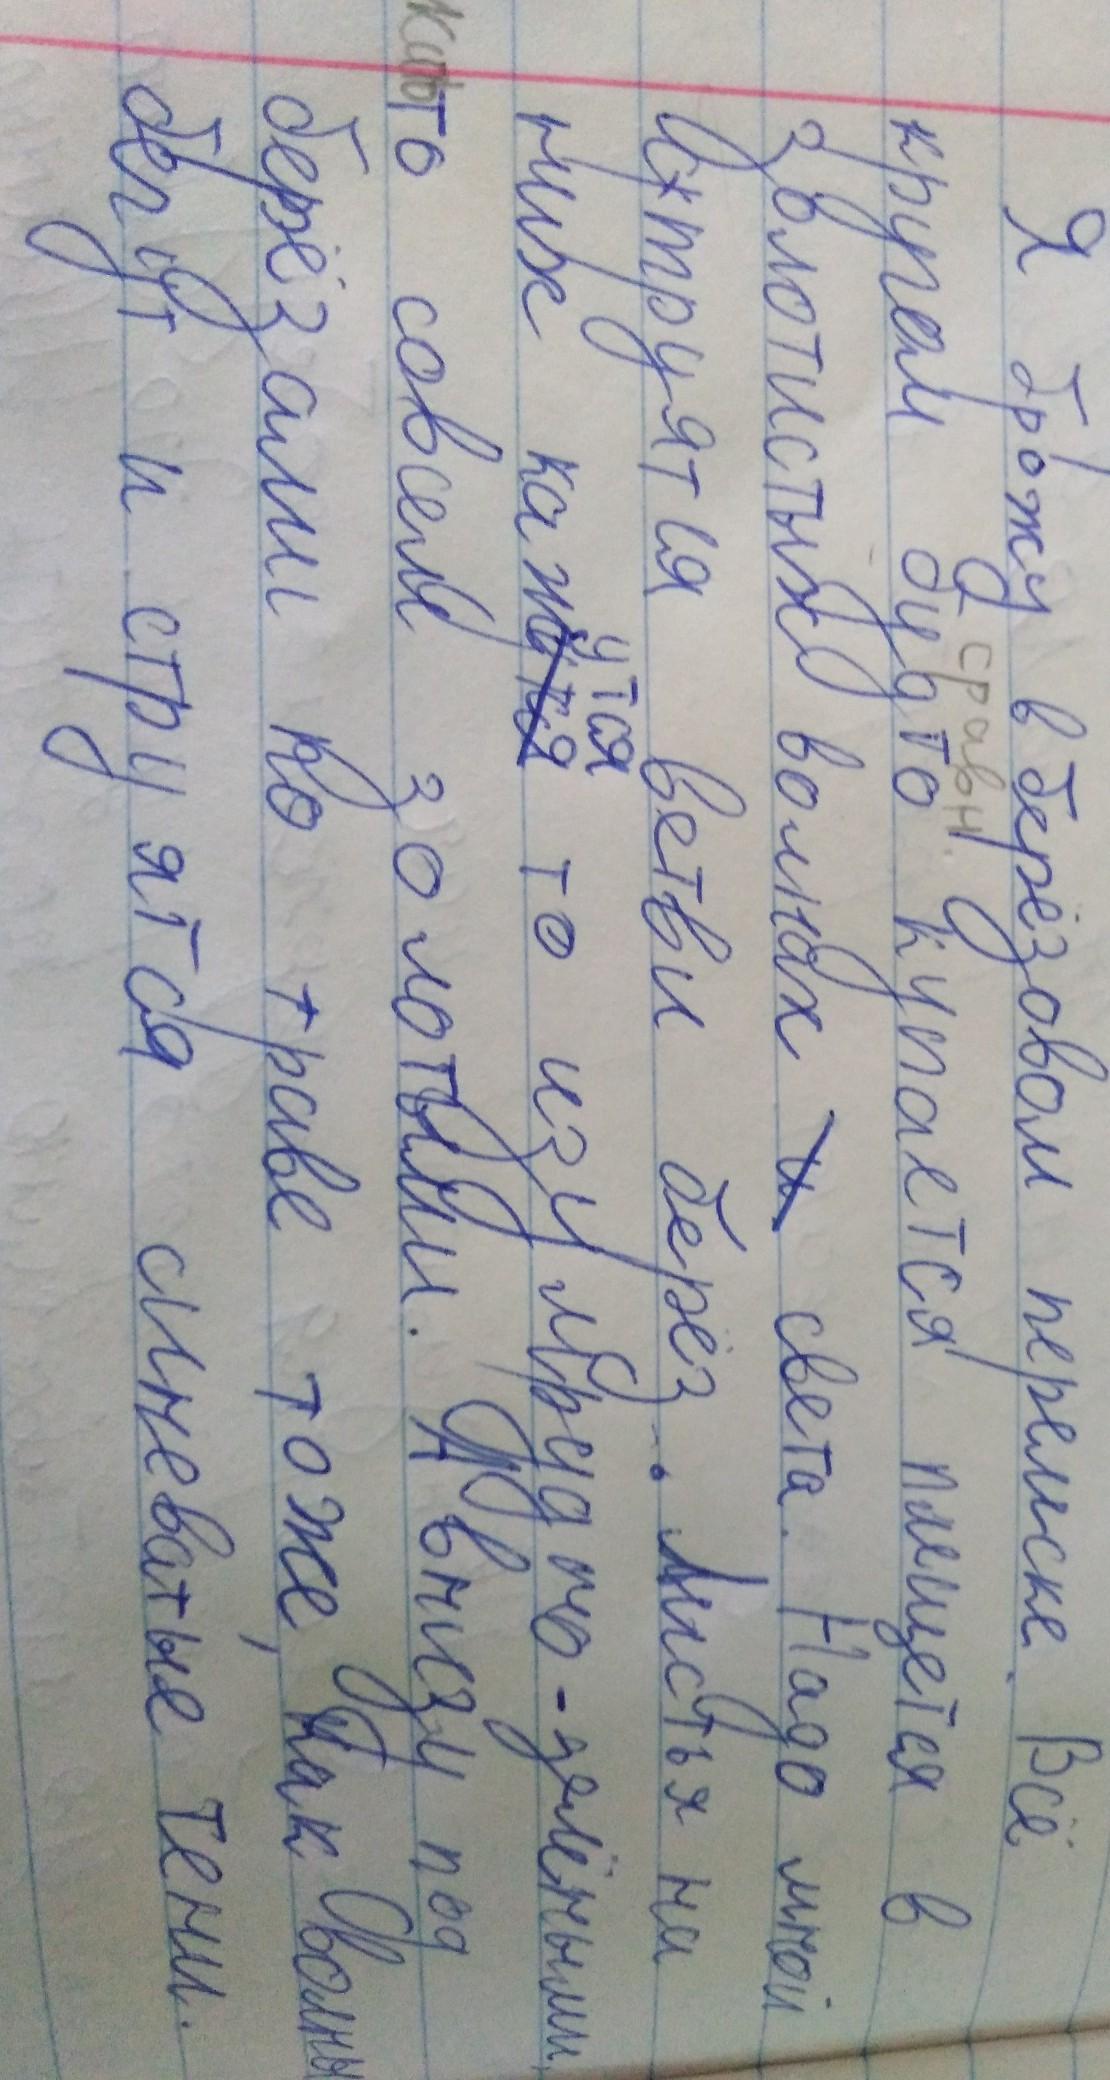 Я брожу в берёзовом перелеске. Всё
сравн.
кругом будто купается плещется в
золотистых волнах и света. Надо мной
струятся ветви берёз. Листья на
утся
них кажатся то изумрудно-зелёными,
то совсем золотыми. А внизу под
берёзами по траве тоже, как волны
бегут и струятся синеватые тени.